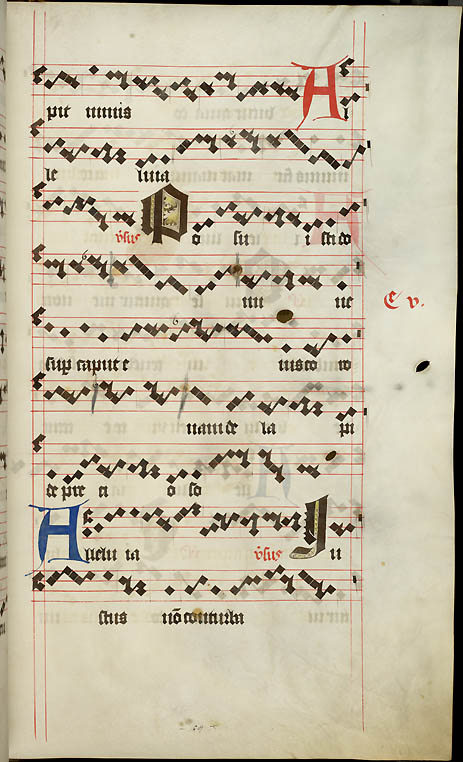 pit nimis Al
le luia
v̄sus Po su i sti do
mi ne
C v.
sup caput e ius co ro
nam de la pi
de pre ci o so
Alleluia v̄sus Iu
stus nō conturba